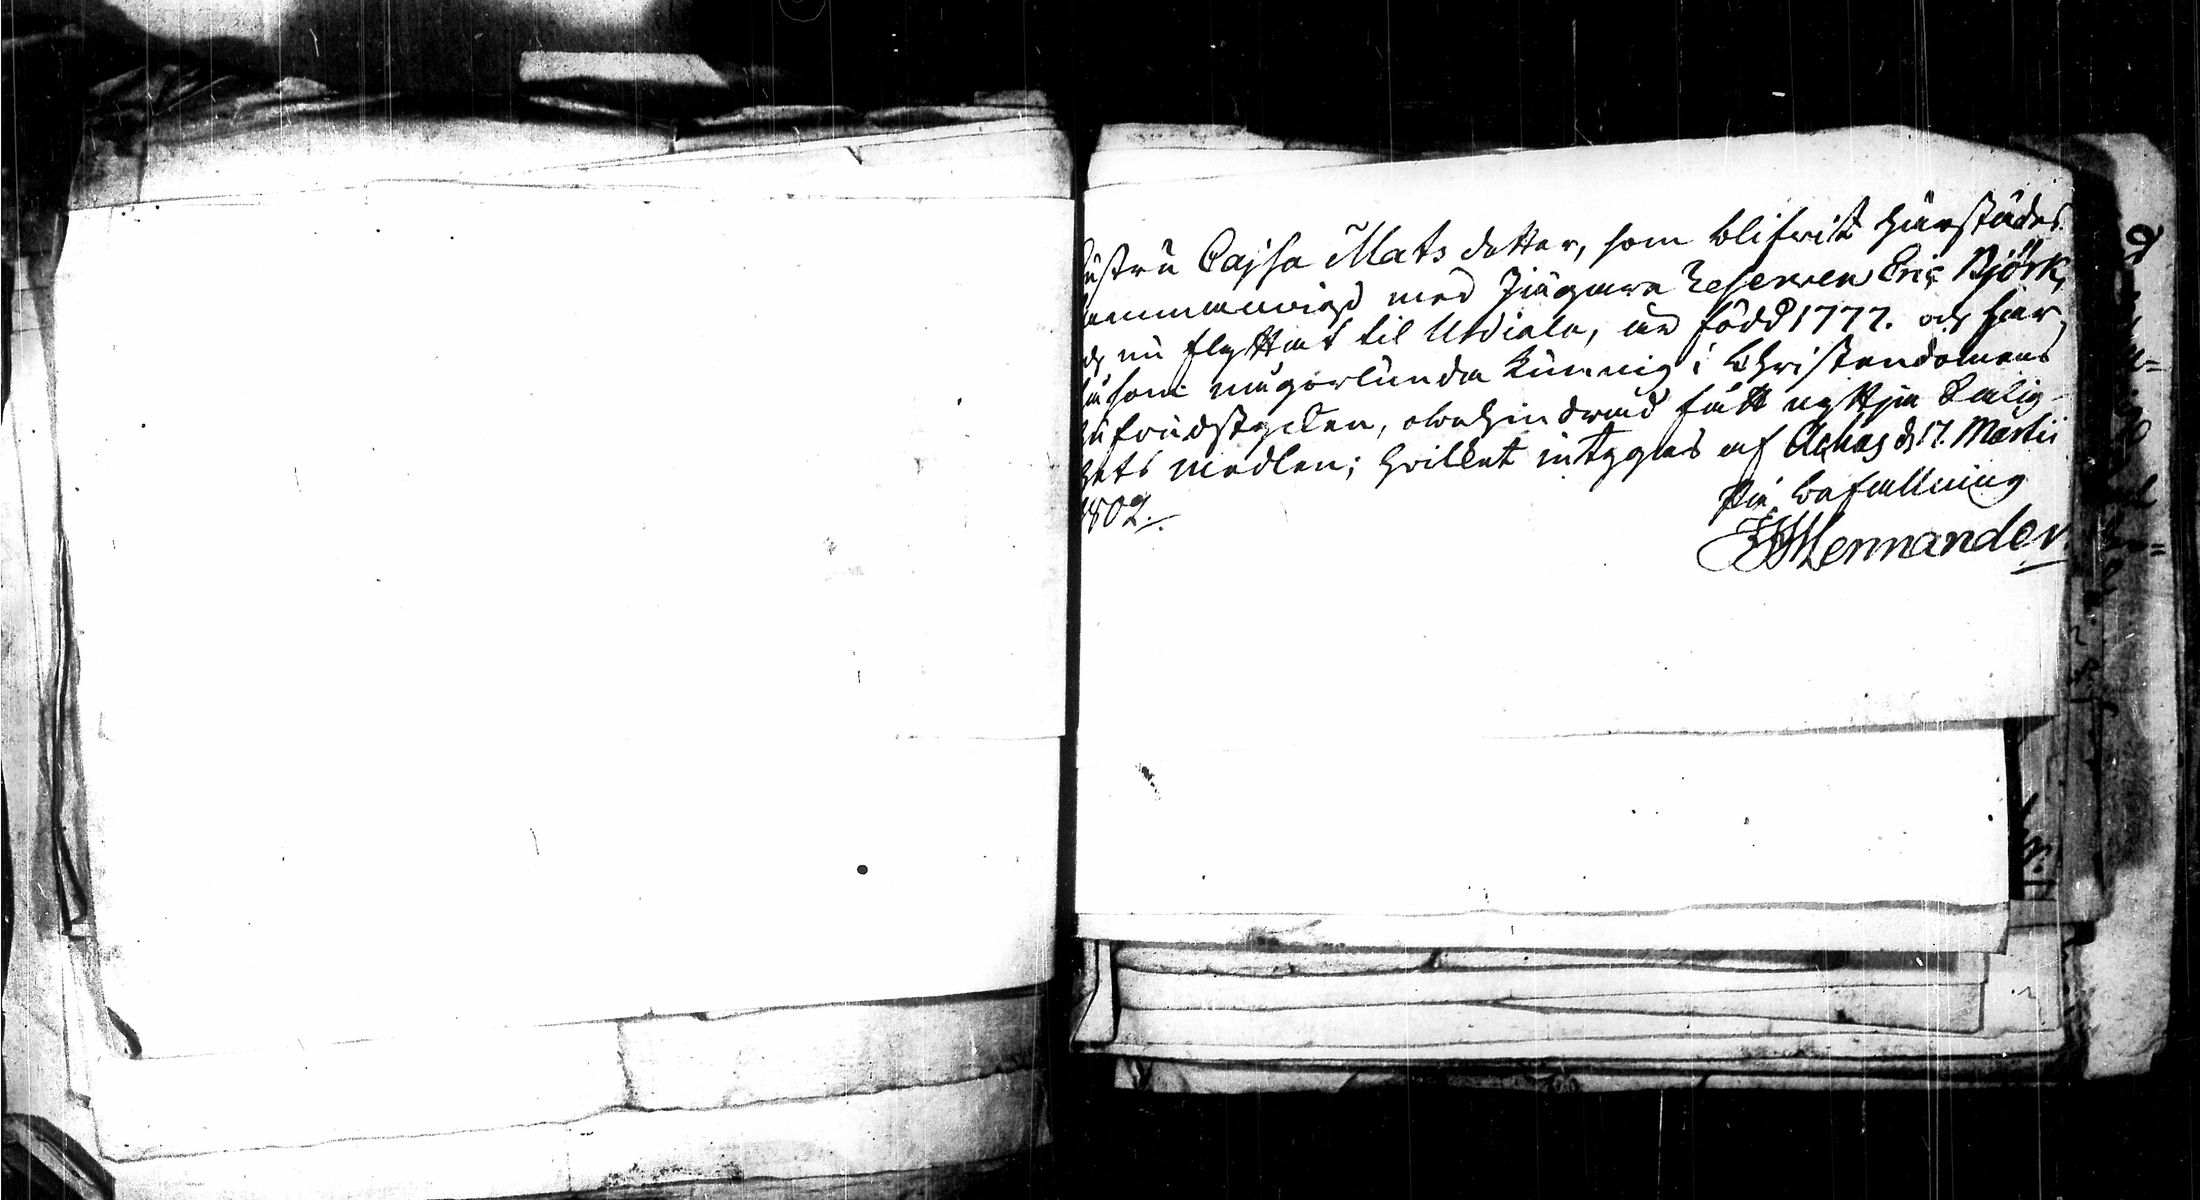 ustru Cajsa Mats dotter, som blifvit härstädes
ammanvigd med Jägare Reserven Eric Björk,
ch nu flyttat til Utdiala, är född 1777. och har,
såsom någorlunda kunnig i Christendomens
hufvudstycken, obehindrad fått nyttja Salig-
hets medlen; hvilket intygas af Achas d. 17. Martii
1802.
På befallning
Wennander